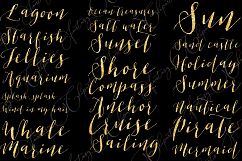 Lagoon
Starfish
Jellies
Aquarium
splash splash
wind in my hair
Whale
Marine
ocean treasures
Salt water
Sunset
Shore
Compass
Anchor
Cruise
Sailing
Sun
Sand castle
Holiday
Summer
Nautical
Pirate
Mermaid